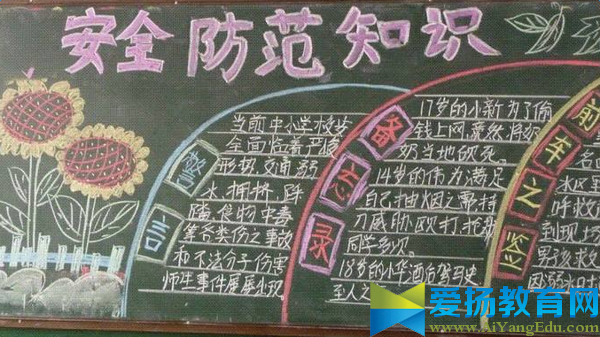 安全防范知识
警言
当前中小学校安
全面临着严峻
形势,交通、弱
水、拥挤、踩
踏、食物中毒
等各类伤亡事故
和不法分子伤害
师生事件屡屡出现
备忘录
17岁的小新为了偷
钱上网,竟然将奶
奶当地砍死。
14岁的伟为满足
自己抽烟之需持
刀威胁欧打抢劫
同学多次。
18岁的小华酒后驾
至人
前车之鉴
呼救
到现场
男孩救
因弱水
爱扬教育网
www.AiYangEdu.com